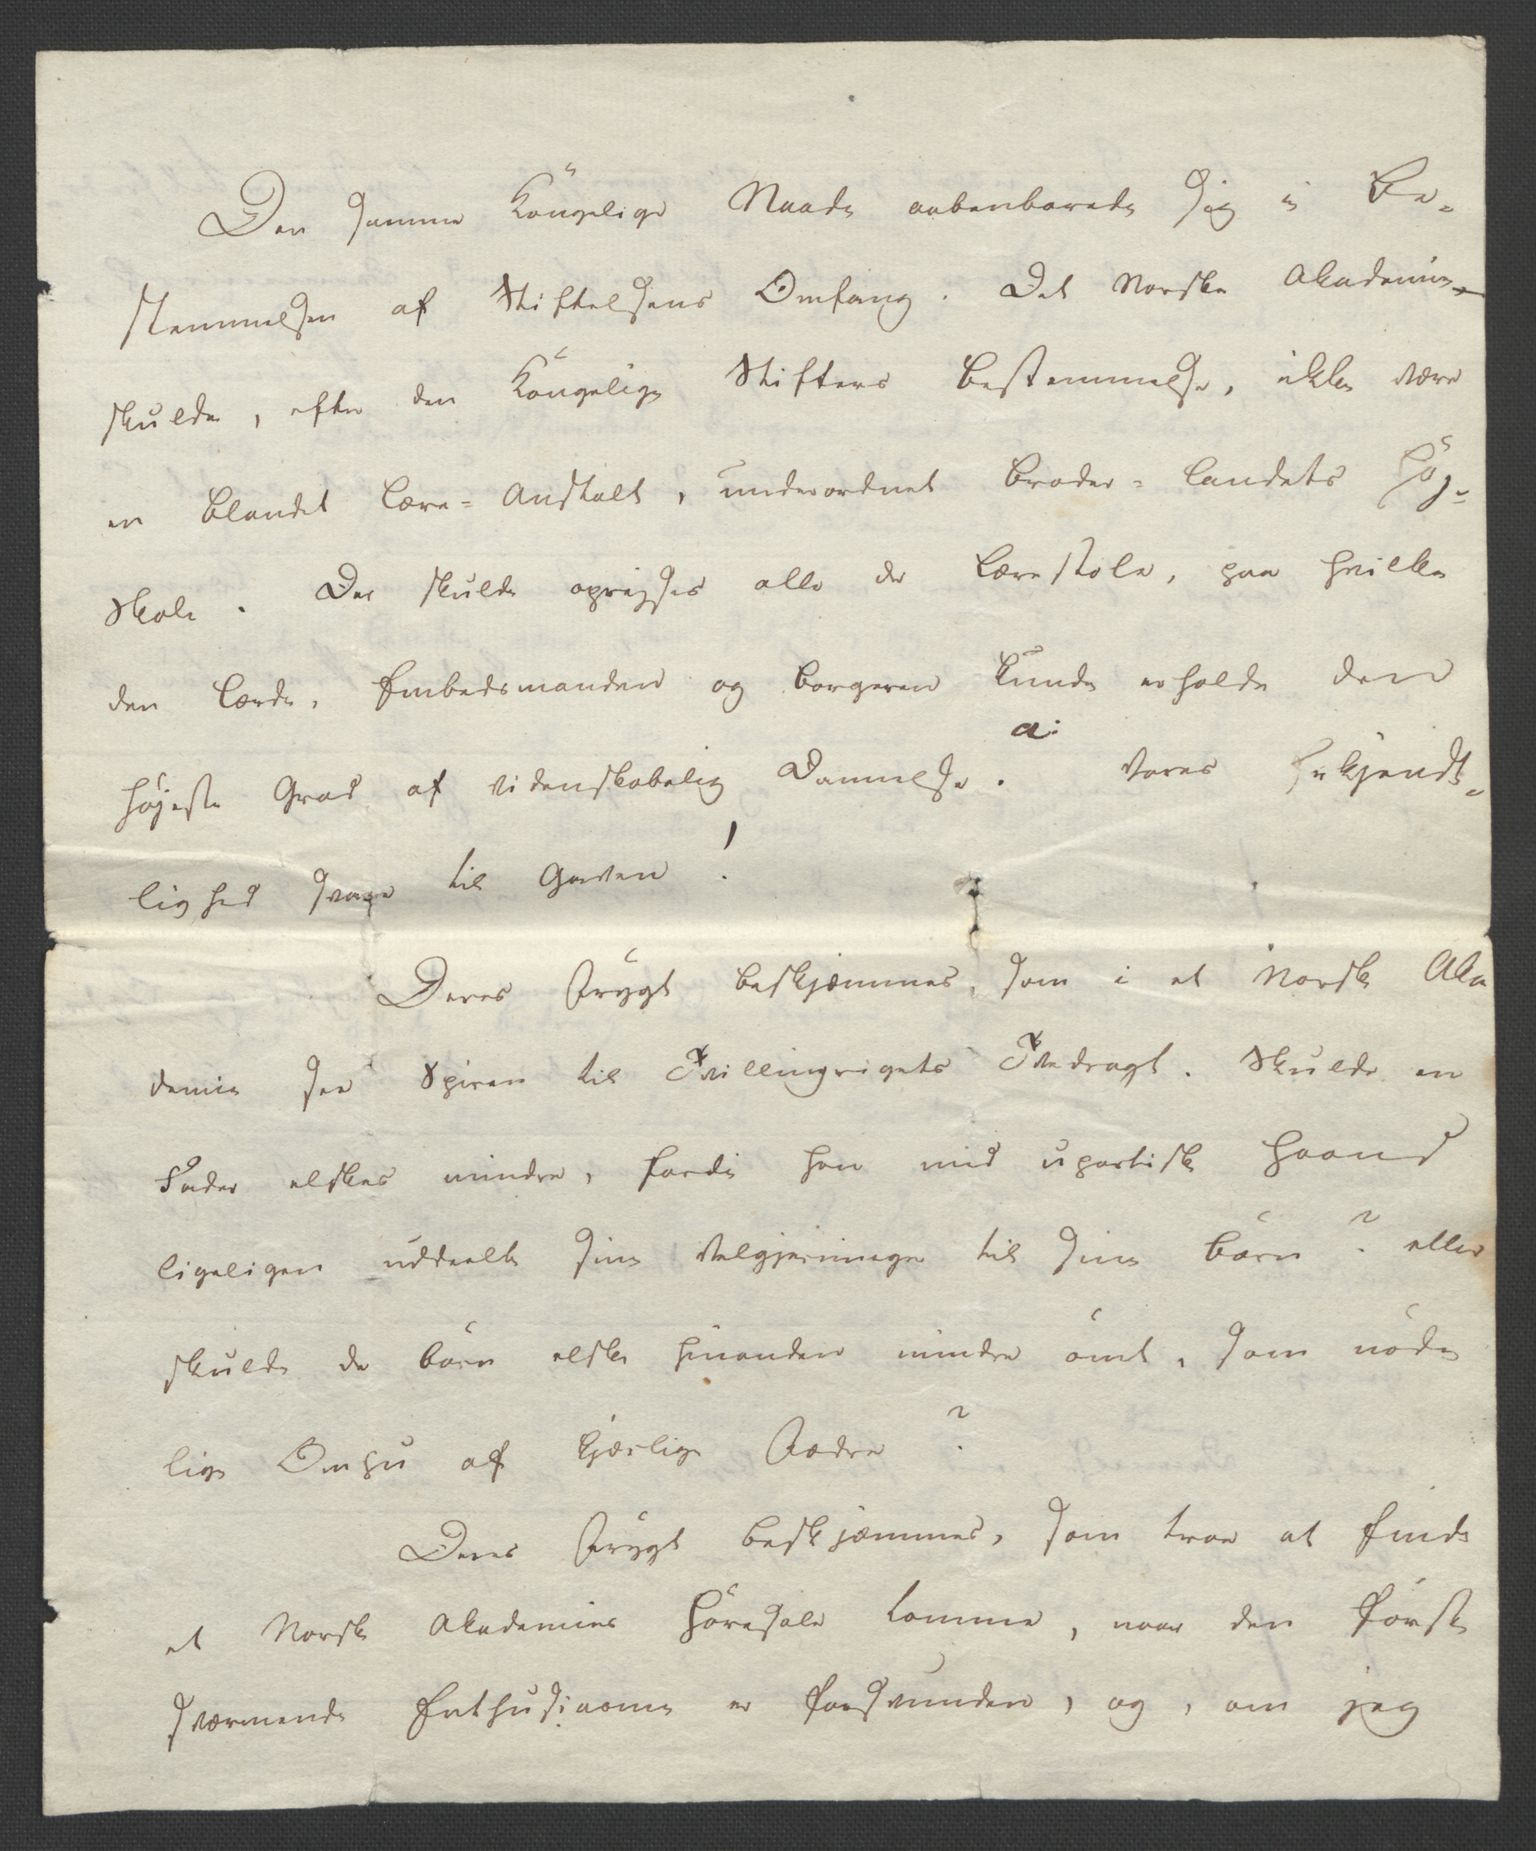 Den samme Kongelige Naade aabenbarede sig i Be-
stemmelsen af Stiftelsens Omfang. Det Norske Akademie
skulde, efter den Kongelige Stifters Bestemmelse, ikke være
en blandet Lære-Anstalt, underordnet Broder-Landets Høj-
skole. Der skulde oprejses alle de Lærestole, paa hvilke
den Lærde, Embedsmanden og Borgeren kunde erholde den
højeste Grad af videnskabelig Dannelse. a: Vores Erkjendt-
lighed svare til Gaven!
Deres Frygt beskjæmmes, som i et Norsk Aka
demie see Spiren til Tvillingrigets Tvedragt. Skulde en
Fader elskes mindre, fordi han med upartisk Haand
ligeligen uddeelte sine Velgjerninger til sine Børn? eller
skulde de Børn elske hinanden mindre ømt, som nøde
lige Omhu af kjærlige Fædre?
Deres Frygt beskjæmmes, som troe at finde
et Norsk Akademies Høresale tomme, naar den første
sværmende Enthusiasme er forsvunden, og, om jeg